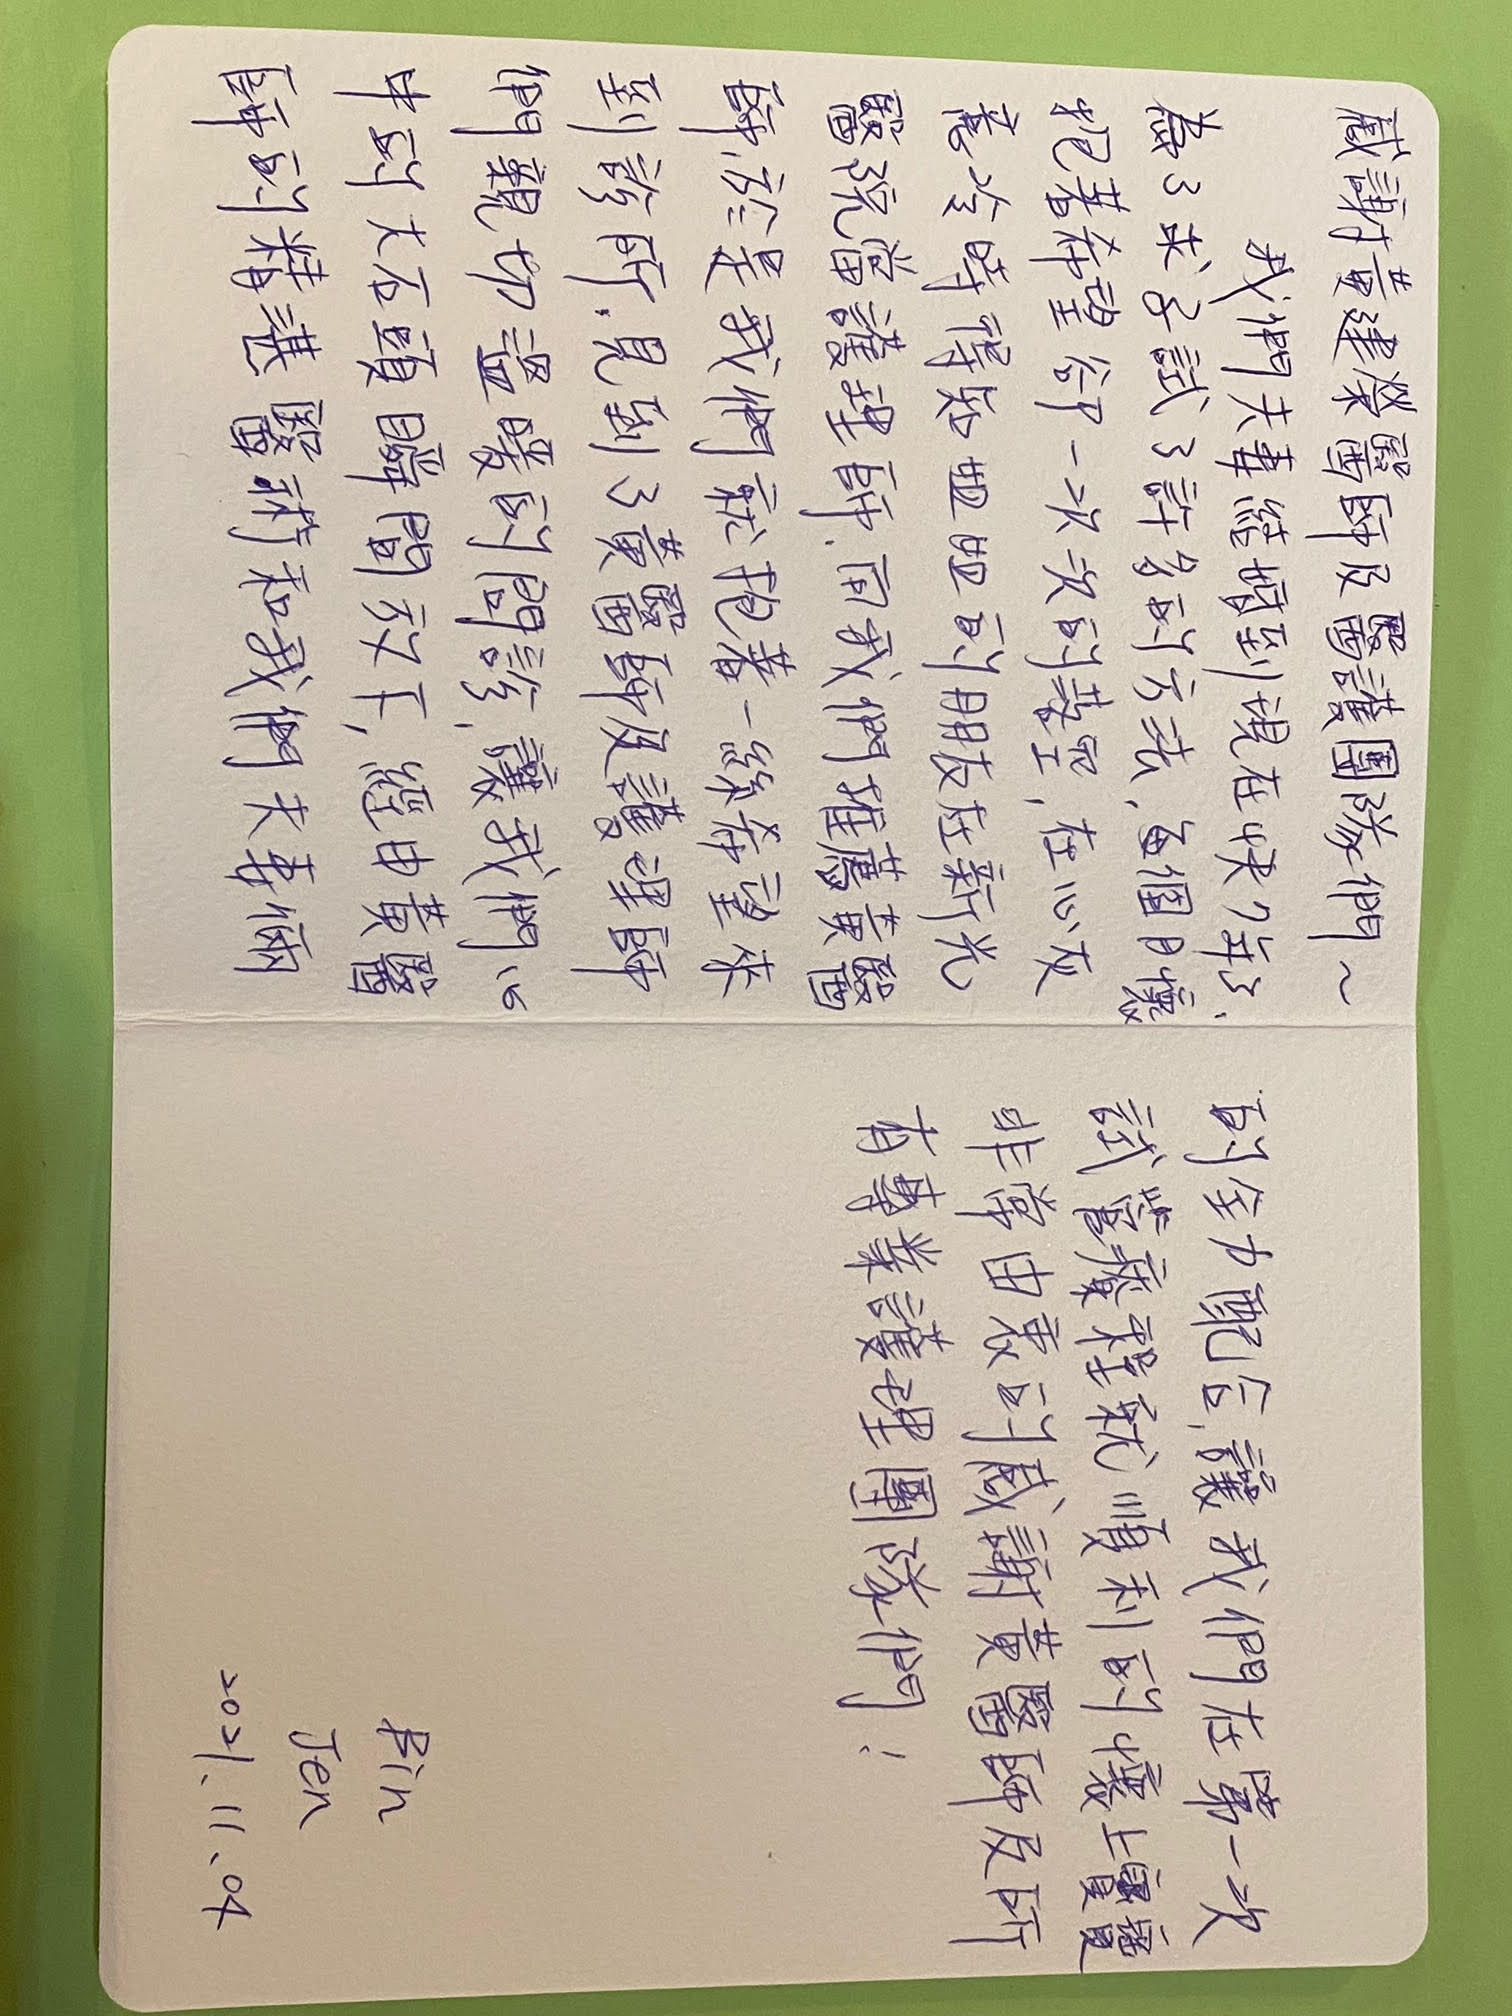 感謝黃建榮醫師及醫護團隊們~
我們夫妻結婚到現在快7年了,
為了求子試了許多的方法,每個月懷
抱著希望卻一次次的落空,在心灰
意冷時得知姐姐的朋友在新光
醫院當護理師,向我們推薦黃醫
師,於是我們就抱著一線希望來
到診所,見到了黃醫師及護理師
們親切溫暖的問診,讓我們心
中的大石頭瞬間放下,經由黃醫
師的精湛醫術和我們夫妻倆
的全力配合,讓我們在第一次
試管療程就順利的懷上寶寶
非常由衷的感謝黃醫師及所
有專業護理團隊們!
Bin
Jen
2021.11.04